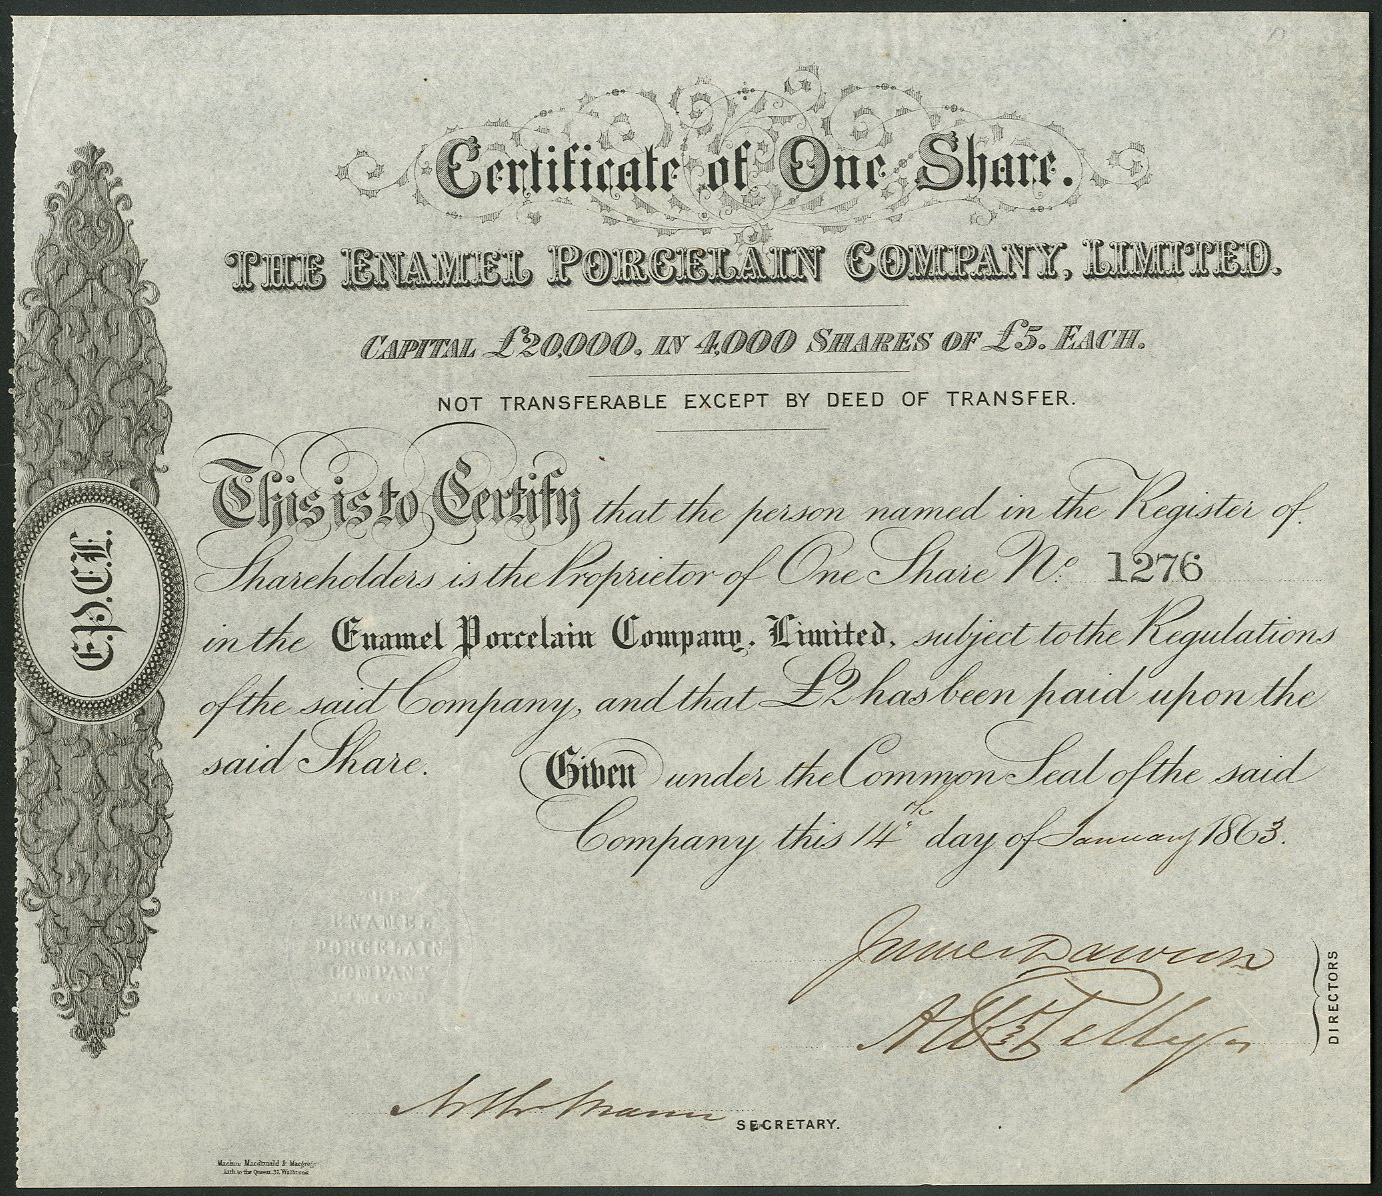 Certificate of One Share.
THE ENAMEL PORCELAIN COMPANY, LIMITED.
CAPITAL £20,000. IN 4,000 SHARES OF £5. EACH.
NOT TRANSFERABLE EXCEPT BY DEED OF TRANSFER.
This is to Certify that the person named in the Register of
Shareholders is the Proprietor of One Share No. 1276
in the Enamel Porcelain Company, Limited, subject to the Regulations
of the said Company, and that £2 has been paid upon the
said Share. Given under the Common Seal of the said
Company this 14th day of January 1863.
E.P.C.L.
THE
ENAMEL
PORCELAIN
COMPANY
LIMITED
James Dawson
DIRECTORS
Mann
SECRETARY.
Maclure Macdonald & Macgregor
Lith to the Queen 37, Walbrook